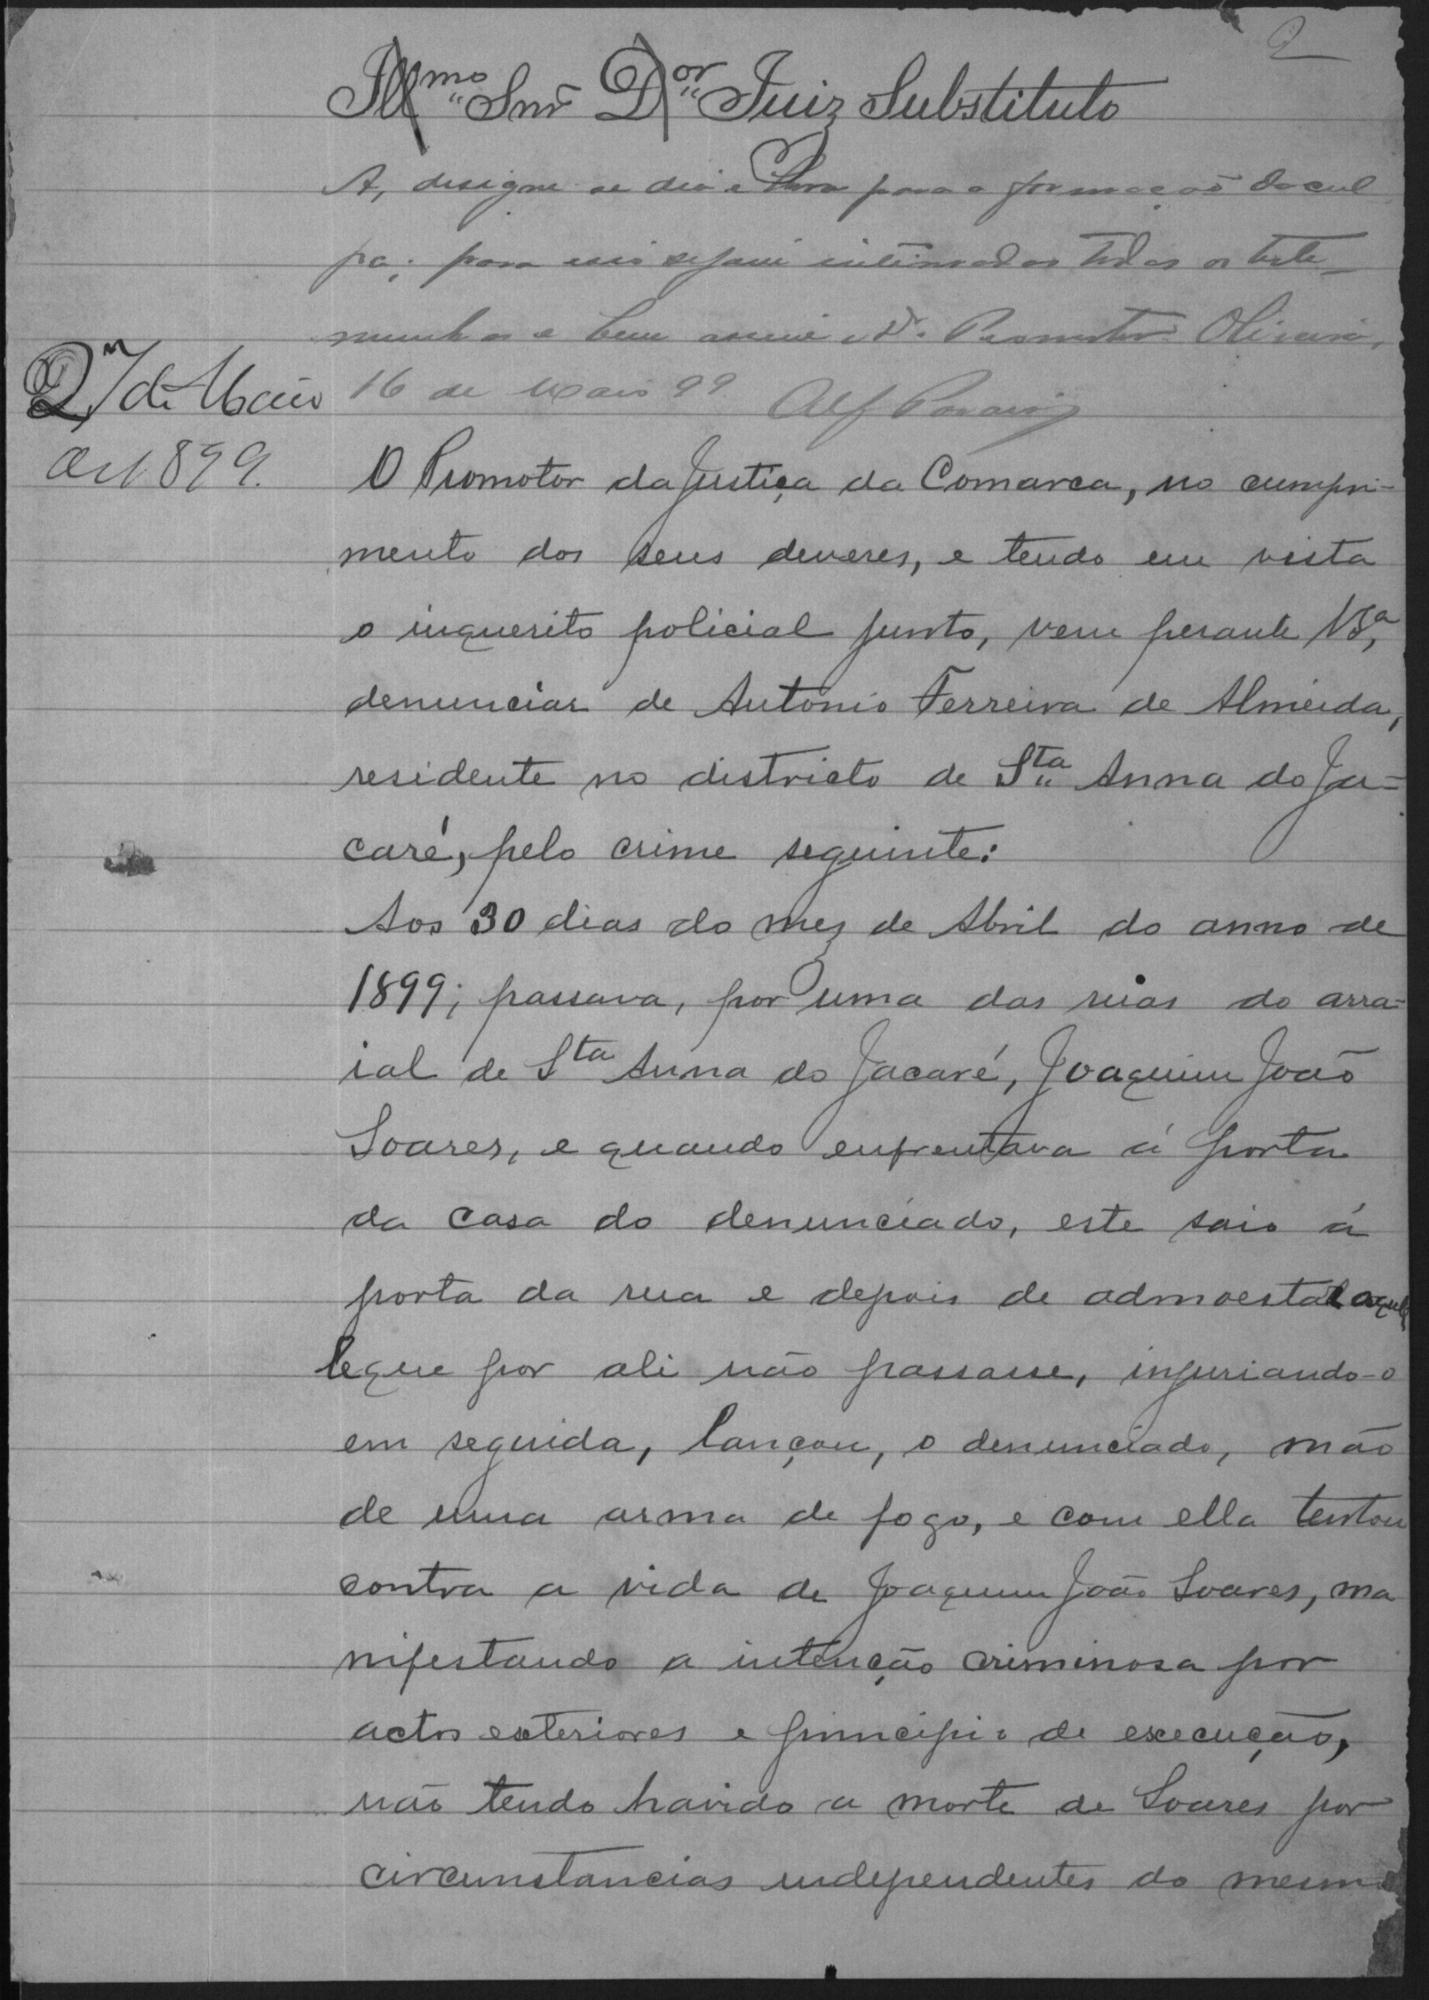 2
Illmo Snr Dor Juiz Substituto
A, designe se dia e hora para a formação da cul
pa; para isso sejam intimados todas as teste-
munhas e bem assim o Dr. Promotor. Oliveira,
16 de Maio 99
27 de Maio
1899.
O Promotor da Justiça da Comarca, no cumpri-
mento dos seus deveres, e tendo em vista
o inquerito policial junto, vem perante VSa,
denunciar de Antonio Ferreira de Almeida,
residente no districto de Sta Anna do Ja=
caré, pelo crime seguinte:
Aos 30 dias do mez de Abril do anno de
1899; passava, por uma das ruas do arra-
ial de Sta Anna do Jacaré, Joaquim João
Soares, e quando enfrentava á porta
da casa do denunciado, este saio á
porta da rua e depois de admoestar aquel
le que por ali não passasse, injuriando-o
em seguida, lançou, o denunciado, mão
de uma arma de fogo, e com ella tentou
contra a vida de Joaquim João Soares, ma
nifestando a intenção criminosa por
actos exteriores e principio de execução,
não tendo havido a morte de Soares por
circumstancias independentes do mesmo